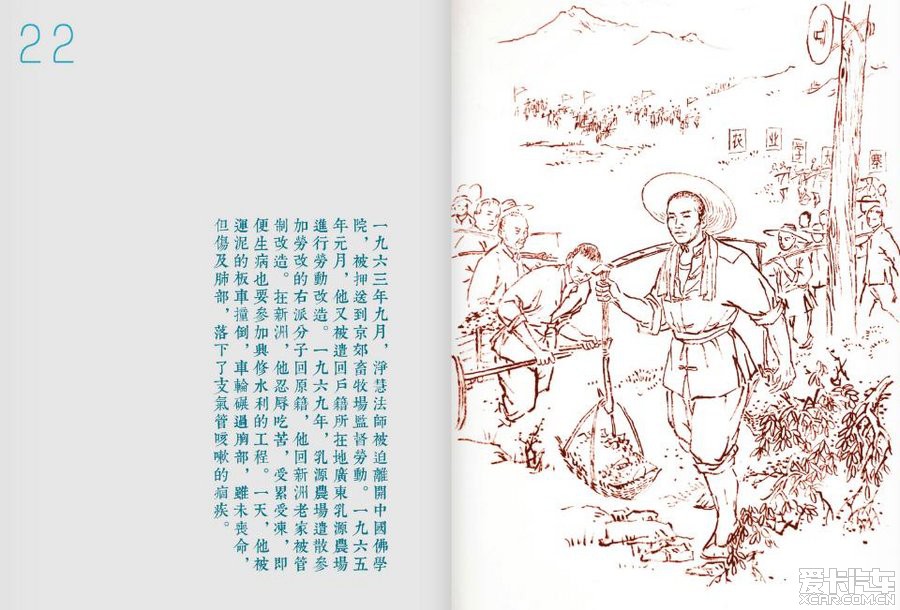 22
一九六三年九月，淨慧法師被迫離開中國佛學
院，被押送到京郊畜牧場監督勞動。一九六五
年元月，他又被遣回戶籍所在地廣東乳源農場
進行勞動改造。一九六九年，乳源農場遣散參
加勞改的右派分子回原籍，他回新洲老家被管
制改造。在新洲，他忍辱吃苦，受累受凍，即
便生病也要參加興修水利的工程。一天，他被
運泥的板車撞倒，車輪碾過胸部，雖未喪命，
但傷及肺部，落下了支氣管咳嗽的痼疾。
农业学大寨
爱卡汽车
XCAR.COM.CN